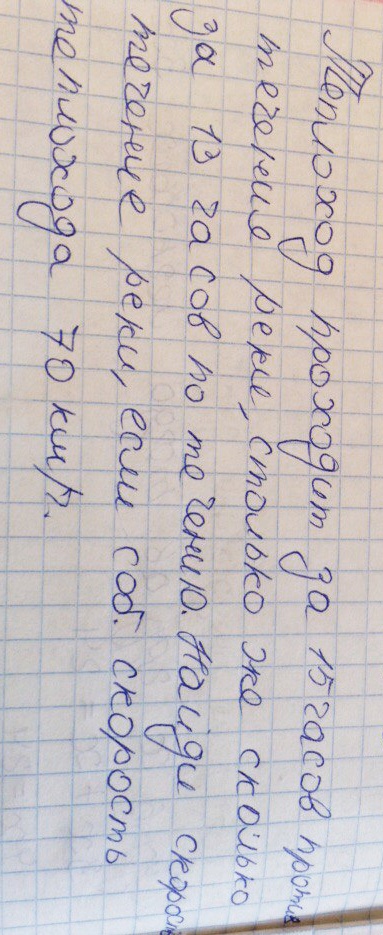 Теплоход проходит за 15 часов против
течения реки, столько же сколько
за 13 часов по течению. Найди скорость
течение реки, если соб. скорость
теплохода 70 км/ч.